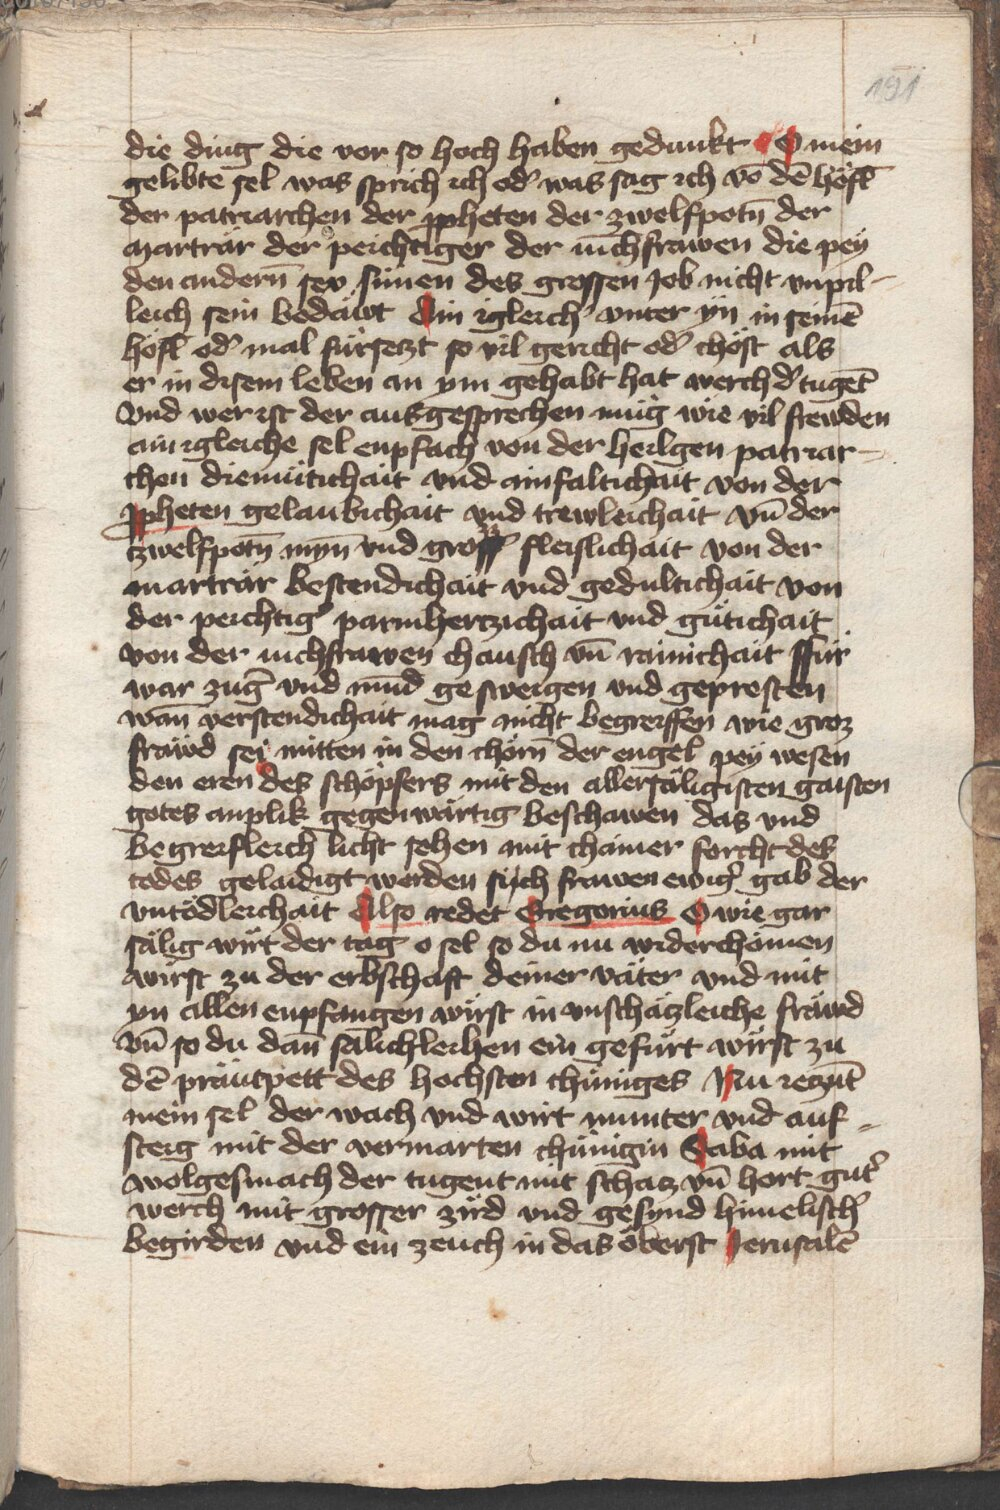 191
die ding die vor so hoch haben gedunkt O mein
gelibte sel was sprich ich od᷑ was sag ich võ dē höfl̄
der patriarchen der ꝓpheten der zwelfpotn̄ der
marträr der peichtiger der iūchfrawen die pey
den andern̄ sex sünen des grossen Job nicht vnpil-
leich sein bedäwt Ain igleich᷑ vnter yn̄ in seinē
höfl̄ od᷑ mal fürseczt so vil gericht od᷑ chöst als
er in disem leben an ym gehabt hat werch d᷑ tugēt
Vnd wer ist der ausgesprechen müg wie vil frewden
ain igleiche sel enpfach von der heilgen patriar-
chen diemütichait vnd ainfaltichait von der
ꝓpheten gelaubichait vnd trewleichait vn̄ der
zwelfpotn̄ myn̄ vnd gross fleislichait von der
marträr bestendichait vnd gedultichait von
der peichtig᷑ parmherczichait vnd gütichait
von der iuchfrawen chausch vn̄ rainichait ffür
war zūg᷑ vnd mūd gesweigen vnd gepresten
wan̄ verstendichait mag nicht begreiffen wie groz
fräwd sei mitten in den chörn̄ der engel pey wesen
den eren des schöpfers mit den allersäligisten gaisten
gotes anplik gegenwärtig beschawen das vnd
begreifleich licht sehen mit chainer forcht des
todes gelaidigt werden sich frawen ewig᷑ gab der
vntödleichait Also redet Gregorius O wie gar
sälig wirt der tag o sel so du nu widerchömen
wirst zu der erbschaft deiner väter vnd mit
yn allen enpfangen wirst in vnschäczleiche fräwd
vn̄ so du dan̄ sälichleichen ein gefürt wirst zu
dē präutpett des hochsten chüniges Nu reczūt
mein sel der wach vnd wirt munter vnd auf-
steig mit der vermarten chünigin Saba mit
wolgesmach der tugent mit schacz vn̄ hort gut᷑
werch mit grosser zird vnd gesund himelisch᷑
begirden vnd ein zeuch in das öberst Jerusalē